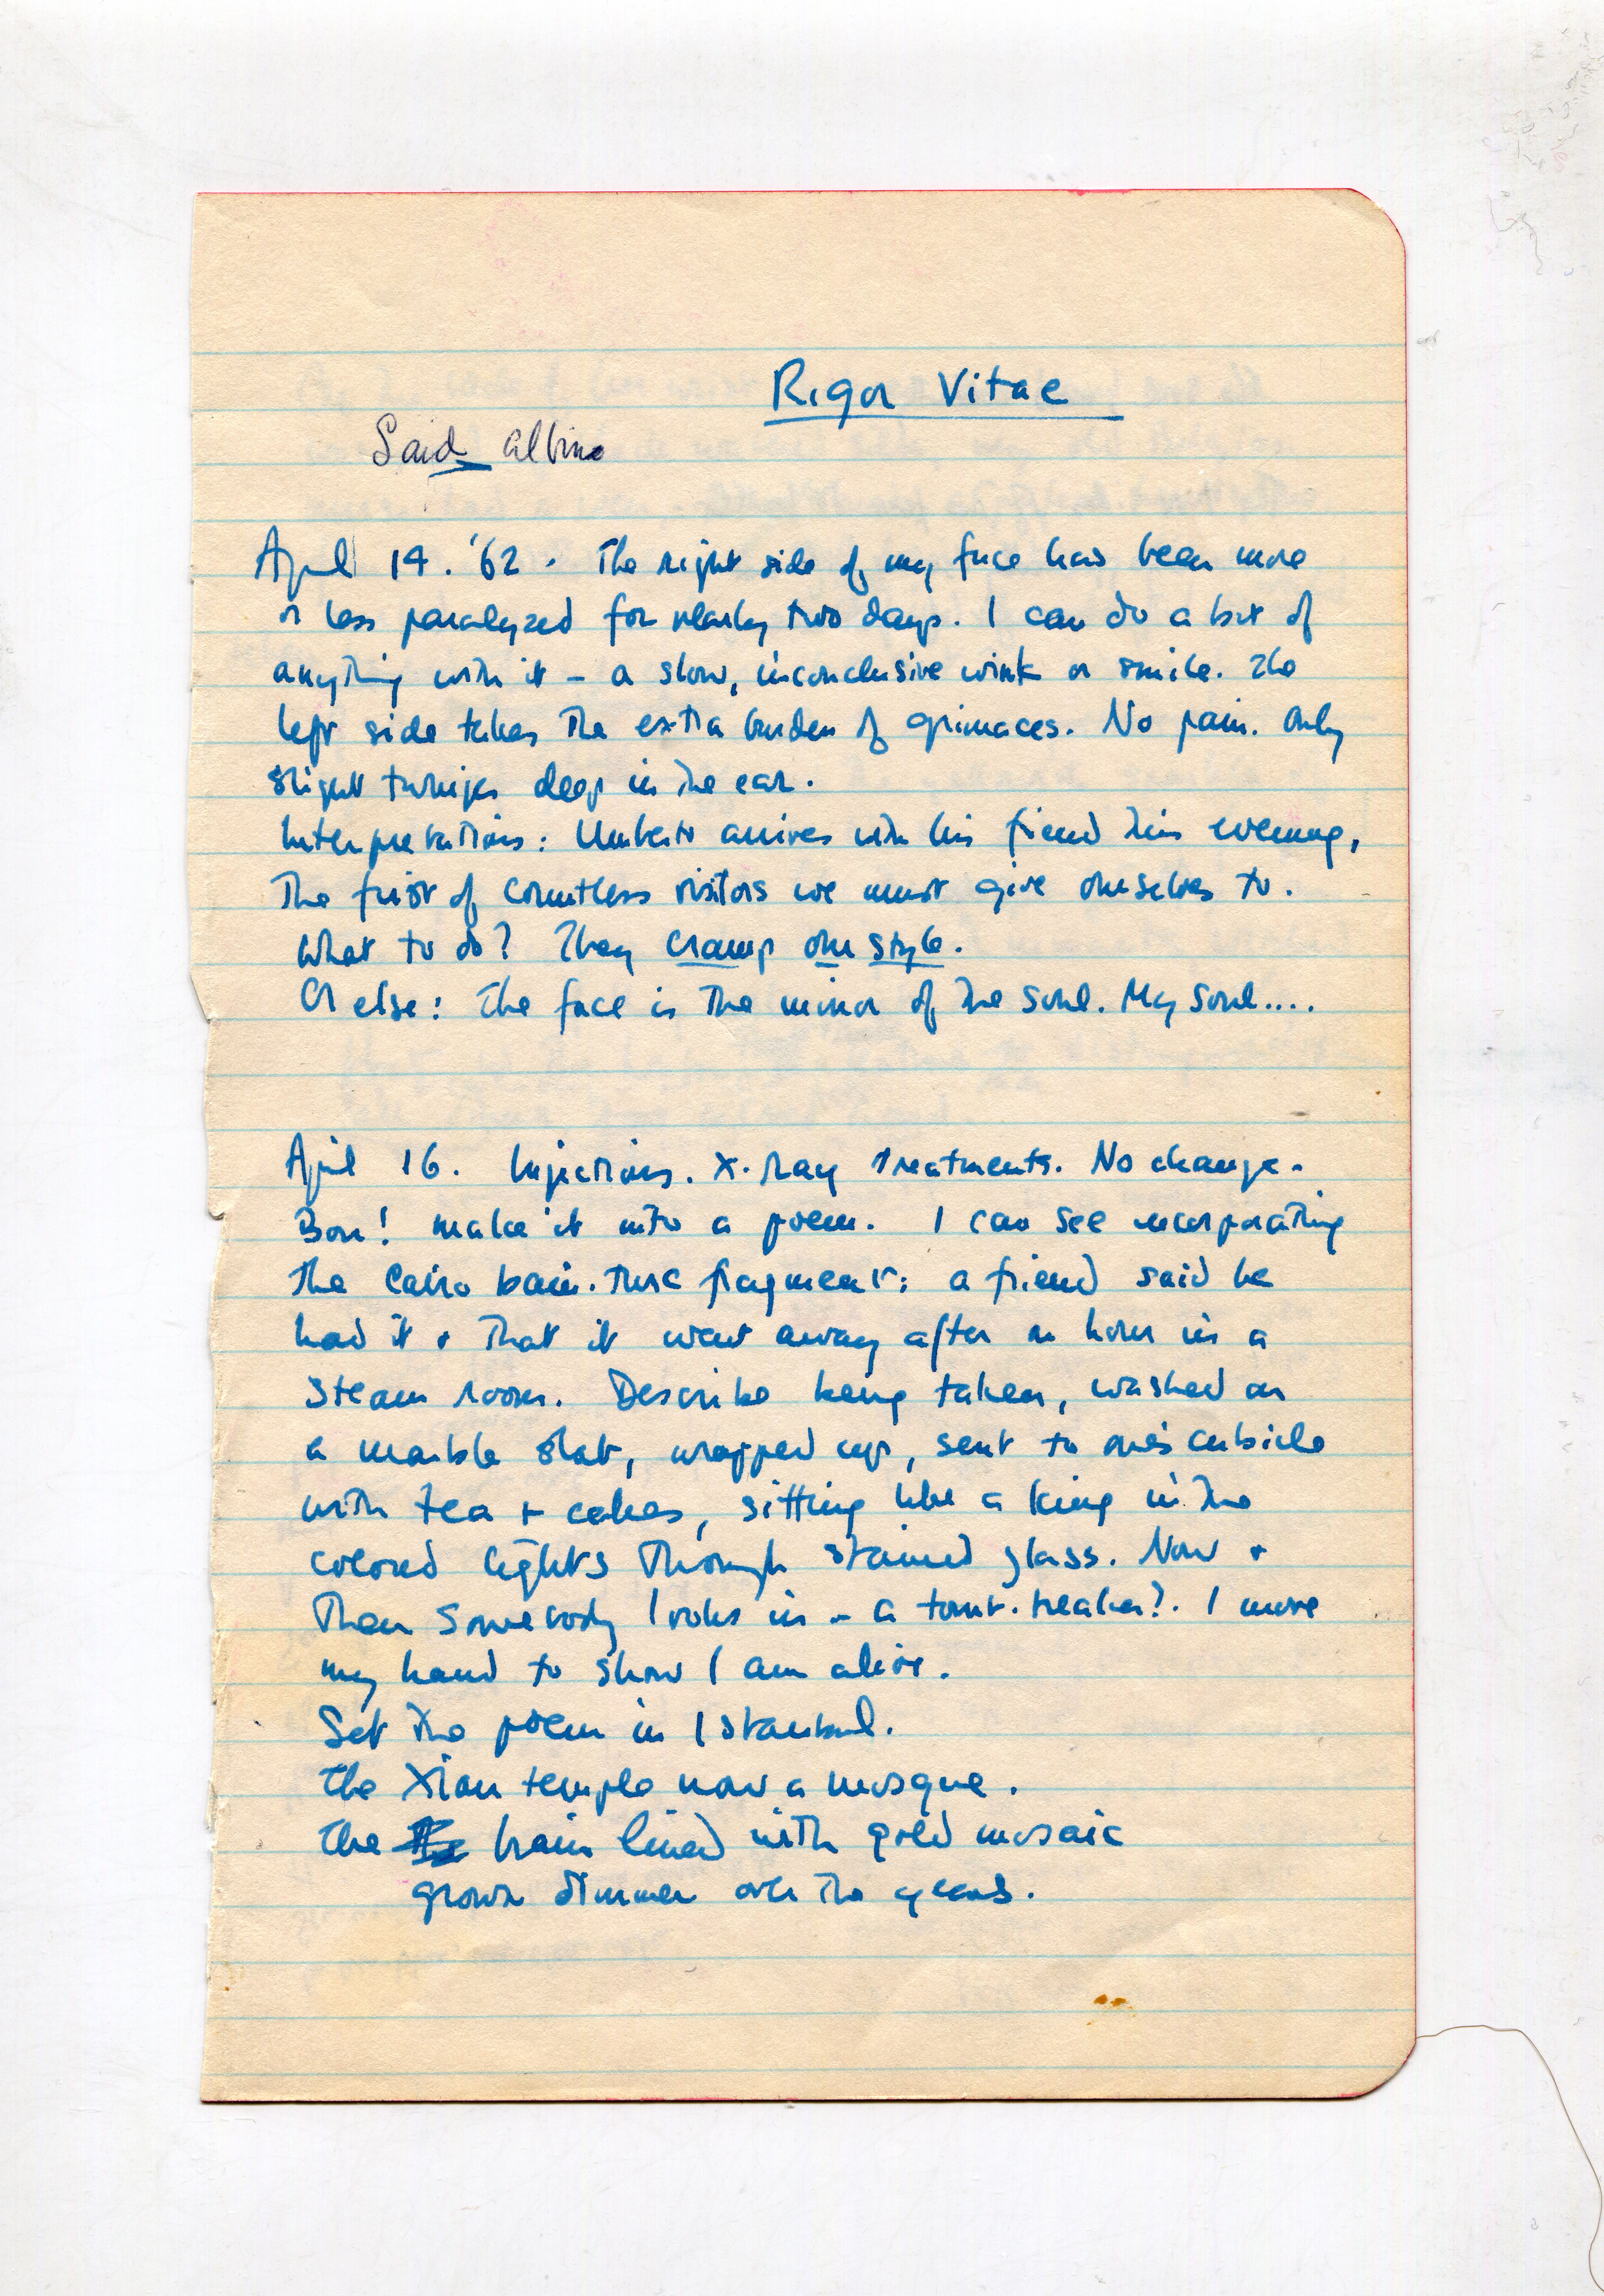 Rigor Vitae
Said albino
April 14. '62. The right side of my face has been more
or less paralyzed for nearly two days. I can do a bit of
anything with it – a slow, inconclusive wink or smile. The
left side takes the extra burden of grimaces. No pain. Only
slight twinges deep in the ear.
Interpretations: Umberto arrives with his friend this evening,
the first of countless visitors we must give ourselves to.
What to do? They cramp our style.
Or else: The face is the mirror of the soul. My soul....
April 16. Injections. X-ray treatments. No change.
Bon! make it into a poem. I can see incorporating
the Cairo bain-turc fragment: a friend said he
had it + that it went away after an hour in a
steam room. Describe being taken, washed on
a marble slab, wrapped up, sent to one's cubicle
with tea + cakes, sitting like a king in the
colored lights through stained glass. Now +
then somebody looks in – a tomb-breaker?. I move
my hand to show I am alive.
Set the poem in Istanbul.
The Xian temple now a mosque.
The brain lined with gold mosaic
grown dimmer over the years.